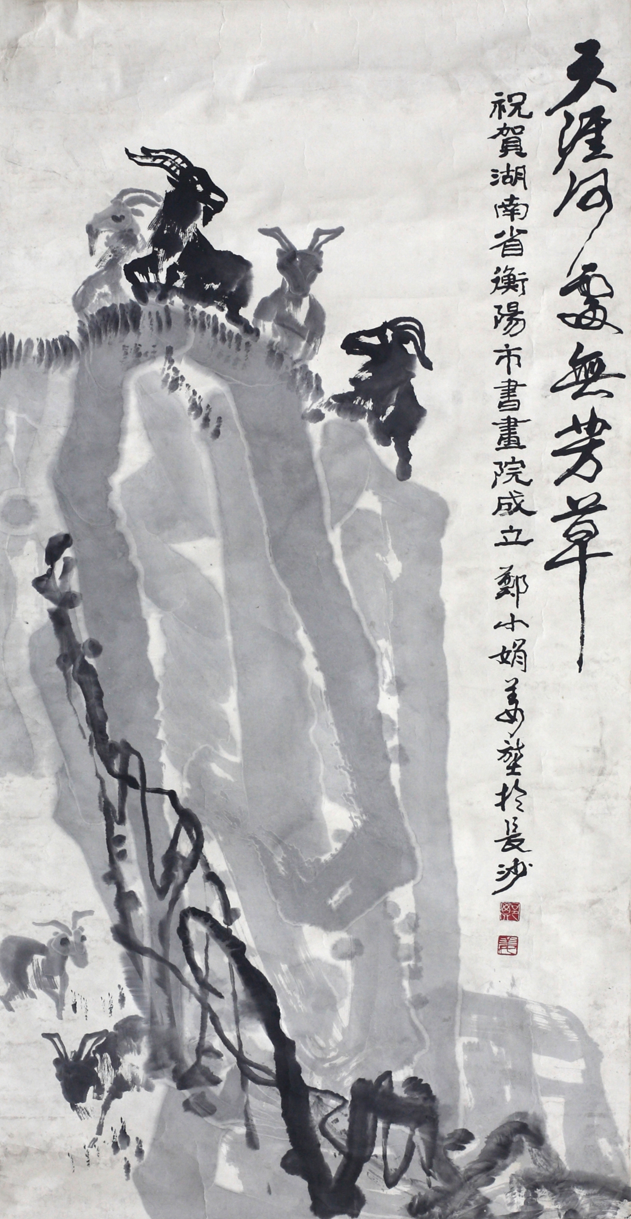 天涯何處無芳草
祝賀湖南省衡陽市書畫院成立 鄭小娟姜堃於長沙